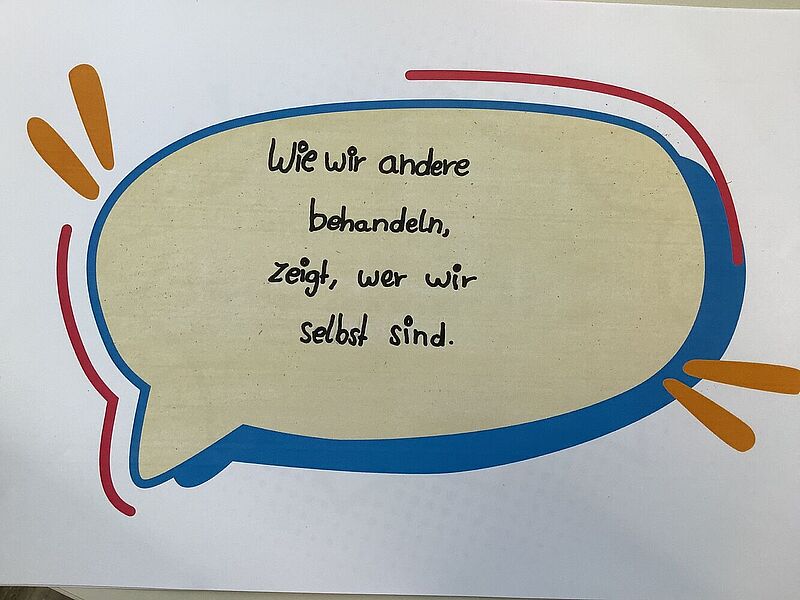 Wie wir andere
behandeln,
zeigt, wer wir
selbst sind.